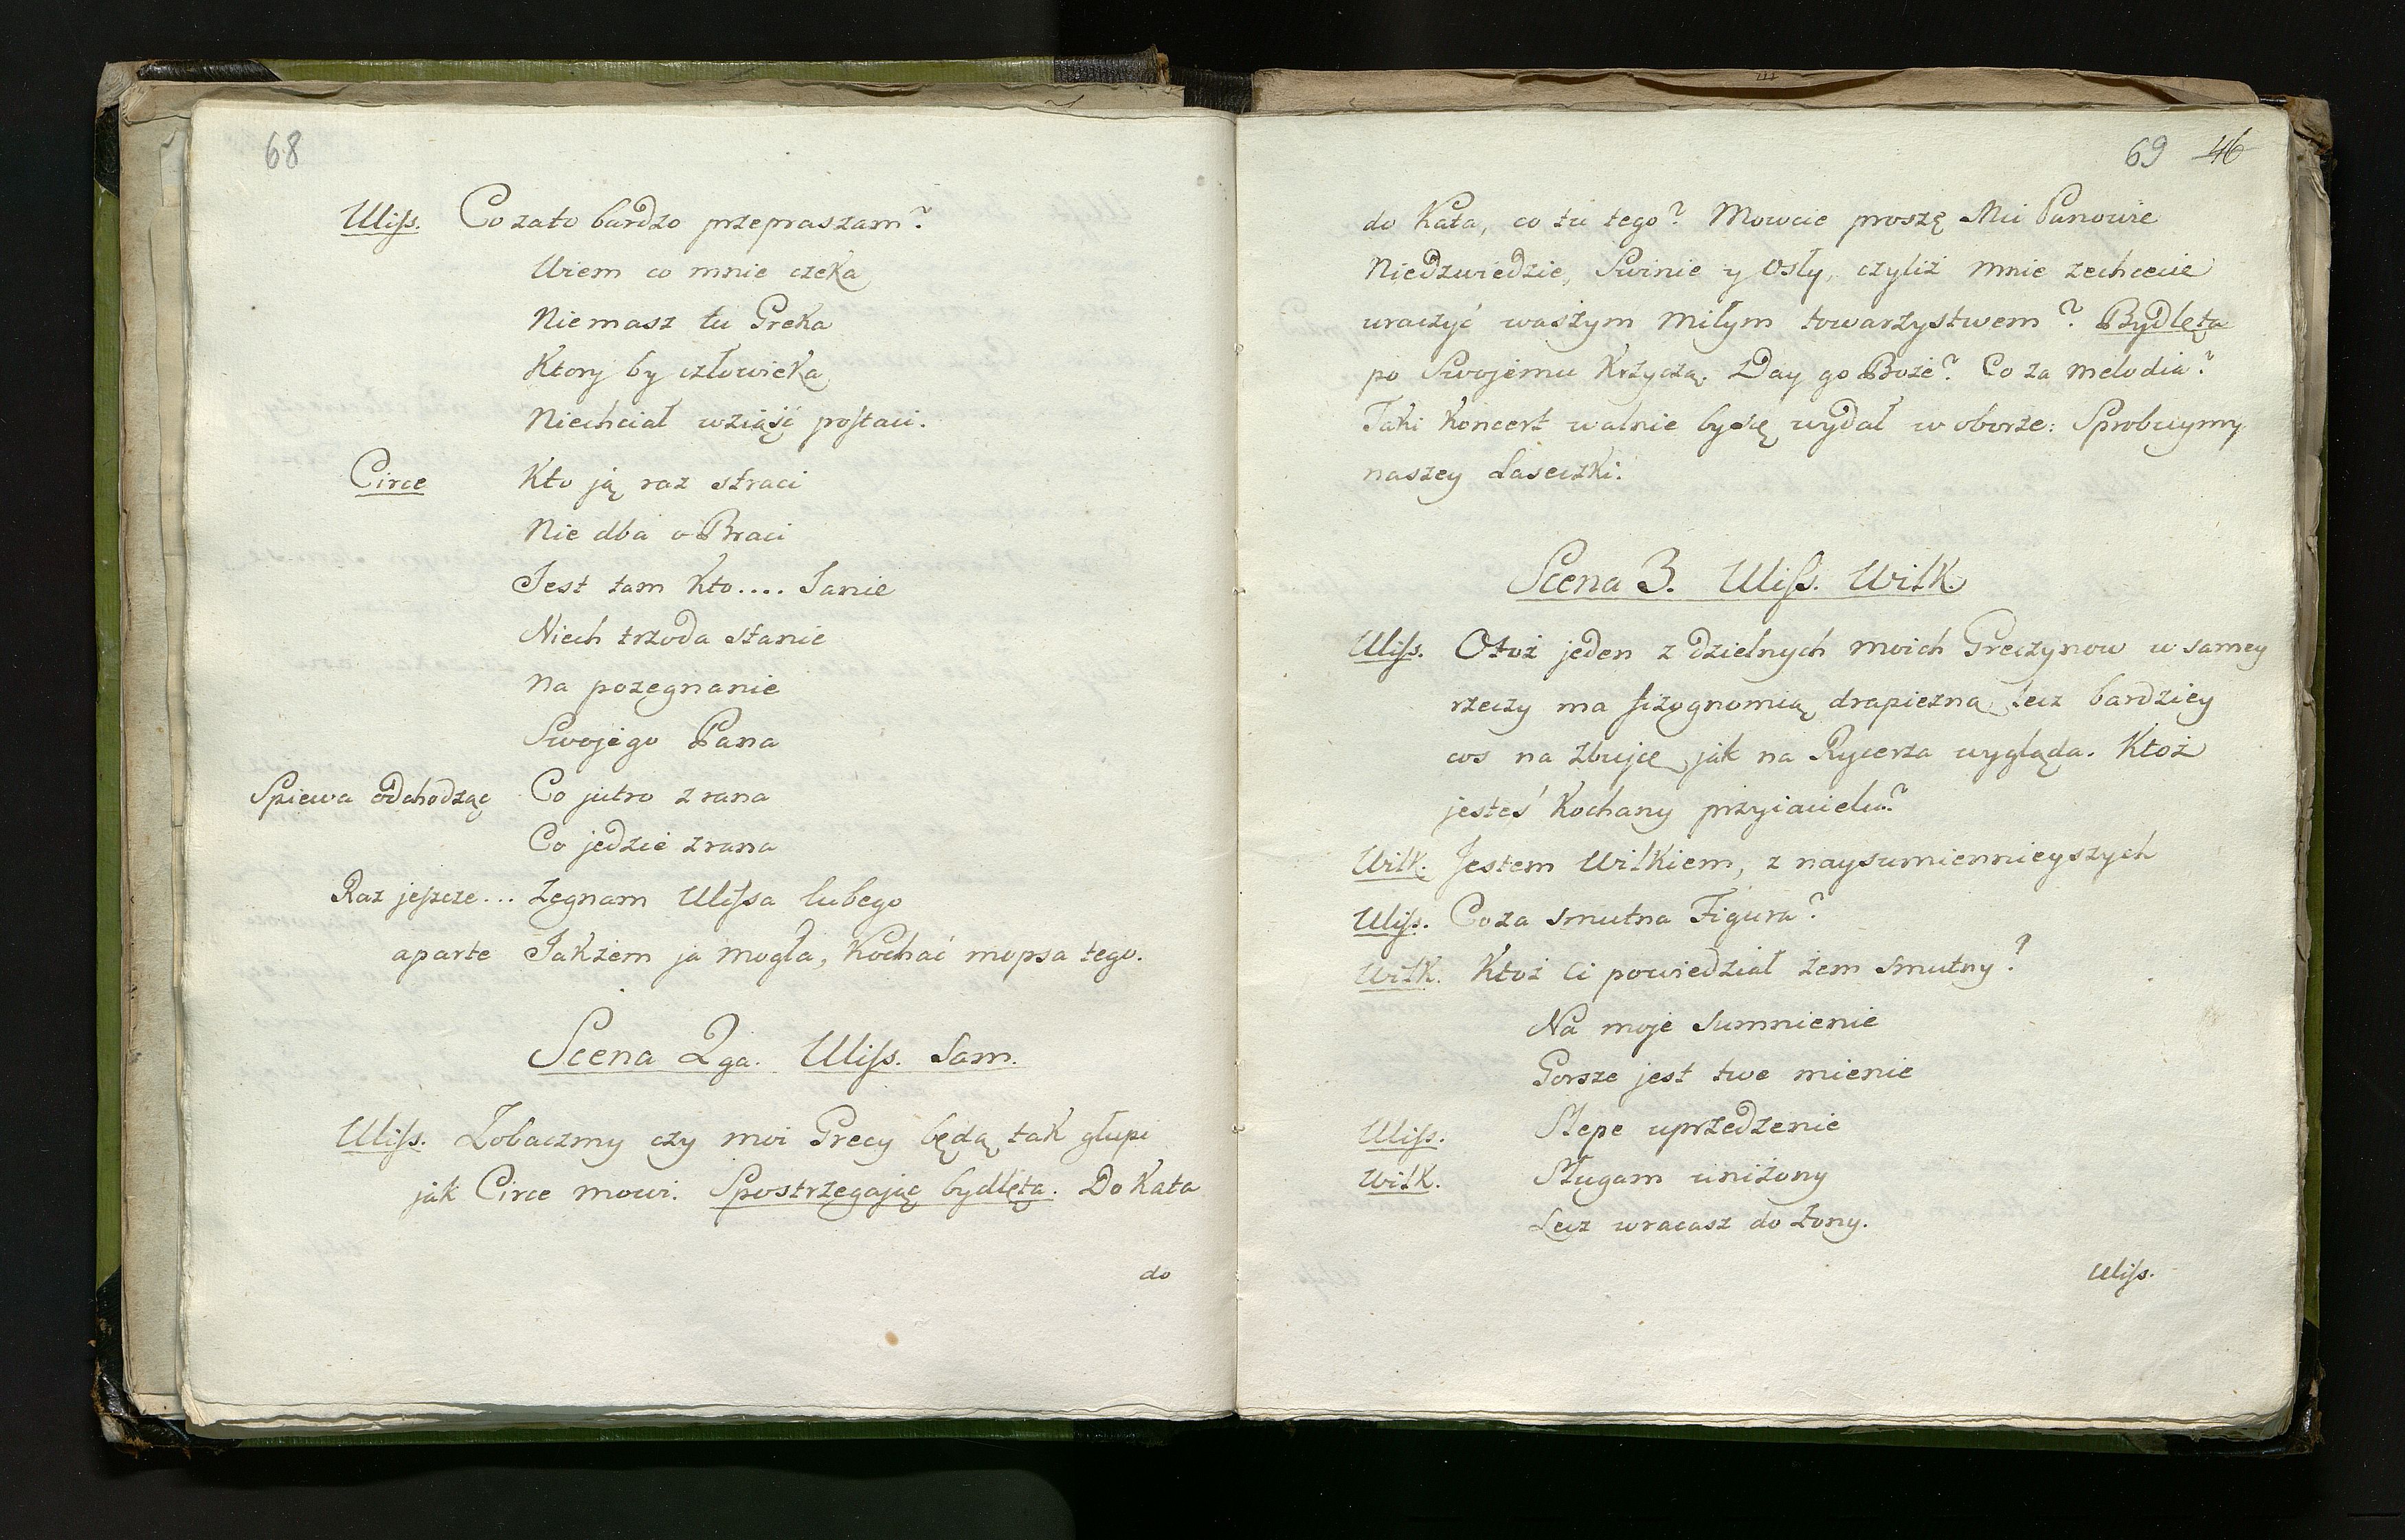 68
Uliss. Co zato bardzo przepraszam?
Wiem co mnie czeka
Niemasz tu Greka
Ktory by człowieka
Niechciał wziąść postaci.
Circe Kto ją raz straci
Nie dba o Braci
Jest tam Kto.... Janie
Niech trzoda stanie
Na pozegnanie
Swojego Pana
Spiewa odchodząc Co jutro z rana
Co jedzie z rana
Raz jeszcze... Zegnam Ulissa lubego
aparte Jakżem ja mogła, Kochać mopsa tego.
Scena 2ga. Uliss. Sam.
Uliss. Zobaczmy czy moi Grecy będą tak głupi
jak Circe mowi. Spostrzegając bydlęta. Do Kata
do
69 46
do Kata, co tu tego? Mowcie proszę Mci Panowie
Niedzwiedzie, Swinie y Osły, czyliż mnie zechcecie
uraczyć waszym miłym towarzystwem? Bydlęta
po Swojemu Krzyczą. Day go Boże? Co za melodia?
Taki Koncert walnie by się wydał w oborze: Sprobuymy
naszey Laseczki.
Scena 3. Uliss. Wilk.
Uliss. Otoż jeden z dzielnych moich Greczynow w samey
rzeczy ma fizognomią drapiezną lecz bardziey
cos na zbujcę jak na Rycerza wygląda. Ktoż
jesteś Kochany przyiacielu?
Wilk. Jestem Wilkiem, z naysumiennieyszych
Uliss. Co za smutna Figura?
Wilk. Ktoż Ci powiedział żem smutny?
Na moje Sumnienie
Gorsze jest twe mienie
Uliss. Slepe uprzedzenie
Wilk. Sługam uniżony
Lecz wracasz do Żony.
Uliss.